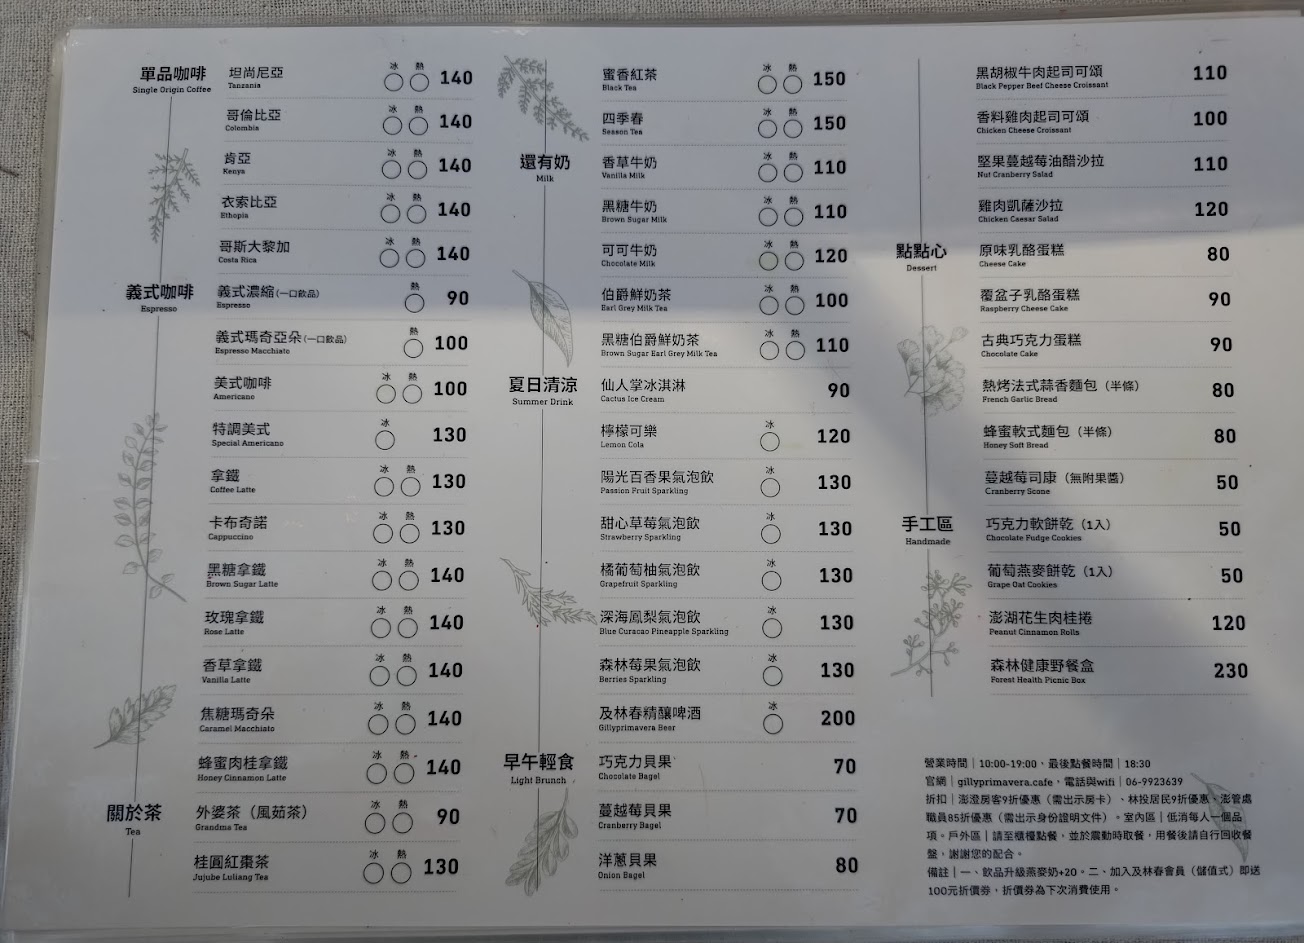 單品咖啡
Single Origin Coffee
坦尚尼亞 冰 熱 140
Tanzania
哥倫比亞 冰 熱 140
Colombia
肯亞 冰 熱 140
Kenya
衣索比亞 冰 熱 140
Ethopia
哥斯大黎加 冰 熱 140
Costa Rica
義式咖啡
Espresso
義式濃縮(一口飲品) 熱 90
Espresso
義式瑪奇亞朵(一口飲品) 熱 100
Espresso Macchiato
美式咖啡 冰 熱 100
Americano
特調美式 冰 130
Special Americano
拿鐵 冰 熱 130
Coffee Latte
卡布奇諾 冰 熱 130
Cappuccino
黑糖拿鐵 冰 熱 140
Brown Sugar Latte
玫瑰拿鐵 冰 熱 140
Rose Latte
香草拿鐵 冰 熱 140
Vanilla Latte
焦糖瑪奇朵 冰 熱 140
Caramel Macchiato
蜂蜜肉桂拿鐵 冰 熱 140
Honey Cinnamon Latte
關於茶
Tea
外婆茶（風茹茶） 冰 熱 90
Grandma Tea
桂圓紅棗茶 冰 熱 130
Jujube Luliang Tea
蜜香紅茶 冰 熱 150
Black Tea
四季春 冰 熱 150
Season Tea
還有奶
Milk
香草牛奶 冰 熱 110
Vanilla Milk
黑糖牛奶 冰 熱 110
Brown Sugar Milk
可可牛奶 冰 熱 120
Chocolate Milk
伯爵鮮奶茶 冰 熱 100
Earl Grey Milk Tea
黑糖伯爵鮮奶茶 冰 熱 110
Brown Sugar Earl Grey Milk Tea
夏日清涼
Summer Drink
仙人掌冰淇淋 90
Cactus Ice Cream
檸檬可樂 冰 120
Lemon Cola
陽光百香果氣泡飲 冰 130
Passion Fruit Sparkling
甜心草莓氣泡飲 冰 130
Strawberry Sparkling
橘葡萄柚氣泡飲 冰 130
Grapefruit Sparkling
深海鳳梨氣泡飲 冰 130
Blue Curacao Pineapple Sparkling
森林莓果氣泡飲 冰 130
Berries Sparkling
及林春精釀啤酒 冰 200
Gillyprimavera Beer
早午輕食
Light Brunch
巧克力貝果 70
Chocolate Bagel
蔓越莓貝果 70
Cranberry Bagel
洋蔥貝果 80
Onion Bagel
黑胡椒牛肉起司可頌 110
Black Pepper Beef Cheese Croissant
香料雞肉起司可頌 100
Chicken Cheese Croissant
堅果蔓越莓油醋沙拉 110
Nut Cranberry Salad
雞肉凱薩沙拉 120
Chicken Caesar Salad
點點心
Dessert
原味乳酪蛋糕 80
Cheese Cake
覆盆子乳酪蛋糕 90
Raspberry Cheese Cake
古典巧克力蛋糕 90
Chocolate Cake
熱烤法式蒜香麵包（半條） 80
French Garlic Bread
蜂蜜軟式麵包（半條） 80
Honey Soft Bread
蔓越莓司康（無附果醬） 50
Cranberry Scone
手工區
Handmade
巧克力軟餅乾（1入） 50
Chocolate Fudge Cookies
葡萄燕麥餅乾（1入） 50
Grape Oat Cookies
澎湖花生肉桂捲 120
Peanut Cinnamon Rolls
森林健康野餐盒 230
Forest Health Picnic Box
營業時間｜10:00-19:00，最後點餐時間｜18:30
官網｜gillyprimavera.cafe，電話與wifi｜06-9923639
折扣｜澎澄房客9折優惠（需出示房卡）、林投居民9折優惠、澎管處
職員85折優惠（需出示身份證明文件）。室內區｜低消每人一個品
項。戶外區｜請至櫃檯點餐，並於震動時取餐，用餐後請自行回收餐
盤，謝謝您的配合。
備註｜一、飲品升級燕麥奶+20。二、加入及林春會員（儲值式）即送
100元折價券，折價券為下次消費使用。